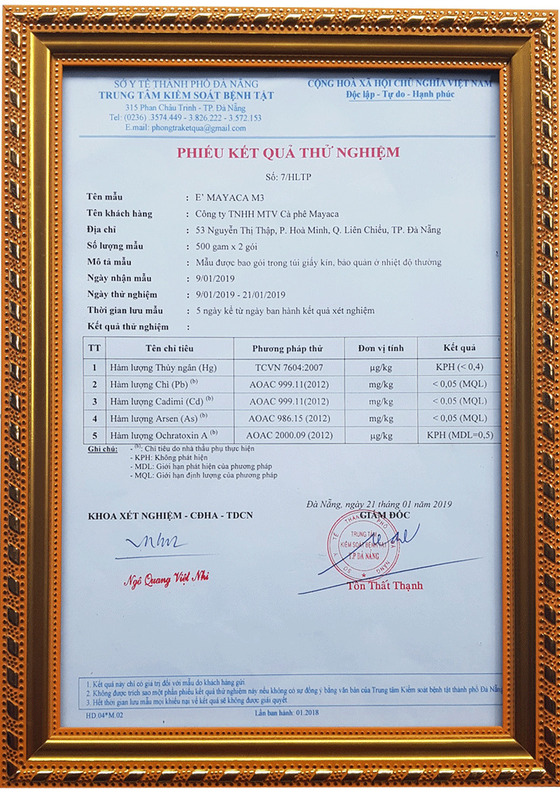 SỞ Y TẾ THÀNH PHỐ ĐÀ NẴNG
TRUNG TÂM KIỂM SOÁT BỆNH TẬT
315 Phan Châu Trinh - TP. Đà Nẵng
Tel: (0236) .3574.449 - 3.826.222 - 3.572.153
E.mail: phongtraketqua@gmail.com
CỘNG HOÀ XÃ HỘI CHỦ NGHĨA VIỆT NAM
Độc lập - Tự do - Hạnh phúc
PHIẾU KẾT QUẢ THỬ NGHIỆM
Số: 7/HLTP
Tên mẫu : E' MAYACA M3
Tên khách hàng : Công ty TNHH MTV Cà phê Mayaca
Địa chỉ : 53 Nguyễn Thị Thập, P. Hoà Minh, Q. Liên Chiểu, TP. Đà Nẵng
Số lượng mẫu : 500 gam x 2 gói
Mô tả mẫu : Mẫu được bao gói trong túi giấy kín, bảo quản ở nhiệt độ thường
Ngày nhận mẫu : 9/01/2019
Ngày thử nghiệm : 9/01/2019 - 21/01/2019
Thời gian lưu mẫu : 5 ngày kể từ ngày ban hành kết quả xét nghiệm
Kết quả thử nghiệm :
TT Tên chỉ tiêu Phương pháp thử Đơn vị tính Kết quả
1 Hàm lượng Thủy ngân (Hg) TCVN 7604:2007 µg/kg KPH (< 0,4)
2 Hàm lượng Chì (Pb) (b) AOAC 999.11(2012) mg/kg < 0,05 (MQL)
3 Hàm lượng Cadimi (Cd) (b) AOAC 999.11(2012) mg/kg < 0,05 (MQL)
4 Hàm lượng Arsen (As) (b) AOAC 986.15 (2012) mg/kg < 0,05 (MQL)
5 Hàm lượng Ochratoxin A (b) AOAC 2000.09 (2012) µg/kg KPH (MDL=0,5)
Ghi chú: - (b): Chỉ tiêu do nhà thầu phụ thực hiện
- KPH: Không phát hiện
- MDL: Giới hạn phát hiện của phương pháp
- MQL: Giới hạn định lượng của phương pháp
Đà Nẵng, ngày 21 tháng 01 năm 2019
KHOA XÉT NGHIỆM - CĐHA - TDCN
GIÁM ĐỐC
TRUNG TÂM
KIỂM SOÁT BỆNH TẬT
T.P ĐÀ NẴNG
Ngô Quang Việt Nhi
Tôn Thất Thạnh
1. Kết quả này chỉ có giá trị đối với mẫu do khách hàng gửi.
2. Không được trích sao một phần phiếu kết quả thử nghiệm này nếu không có sự đồng ý bằng văn bản của Trung tâm Kiểm soát bệnh tật thành phố Đà Nẵng
3. Hết thời gian lưu mẫu mọi khiếu nại về kết quả sẽ không được giải quyết
HD.04*M.02
Lần ban hành: 01.2018